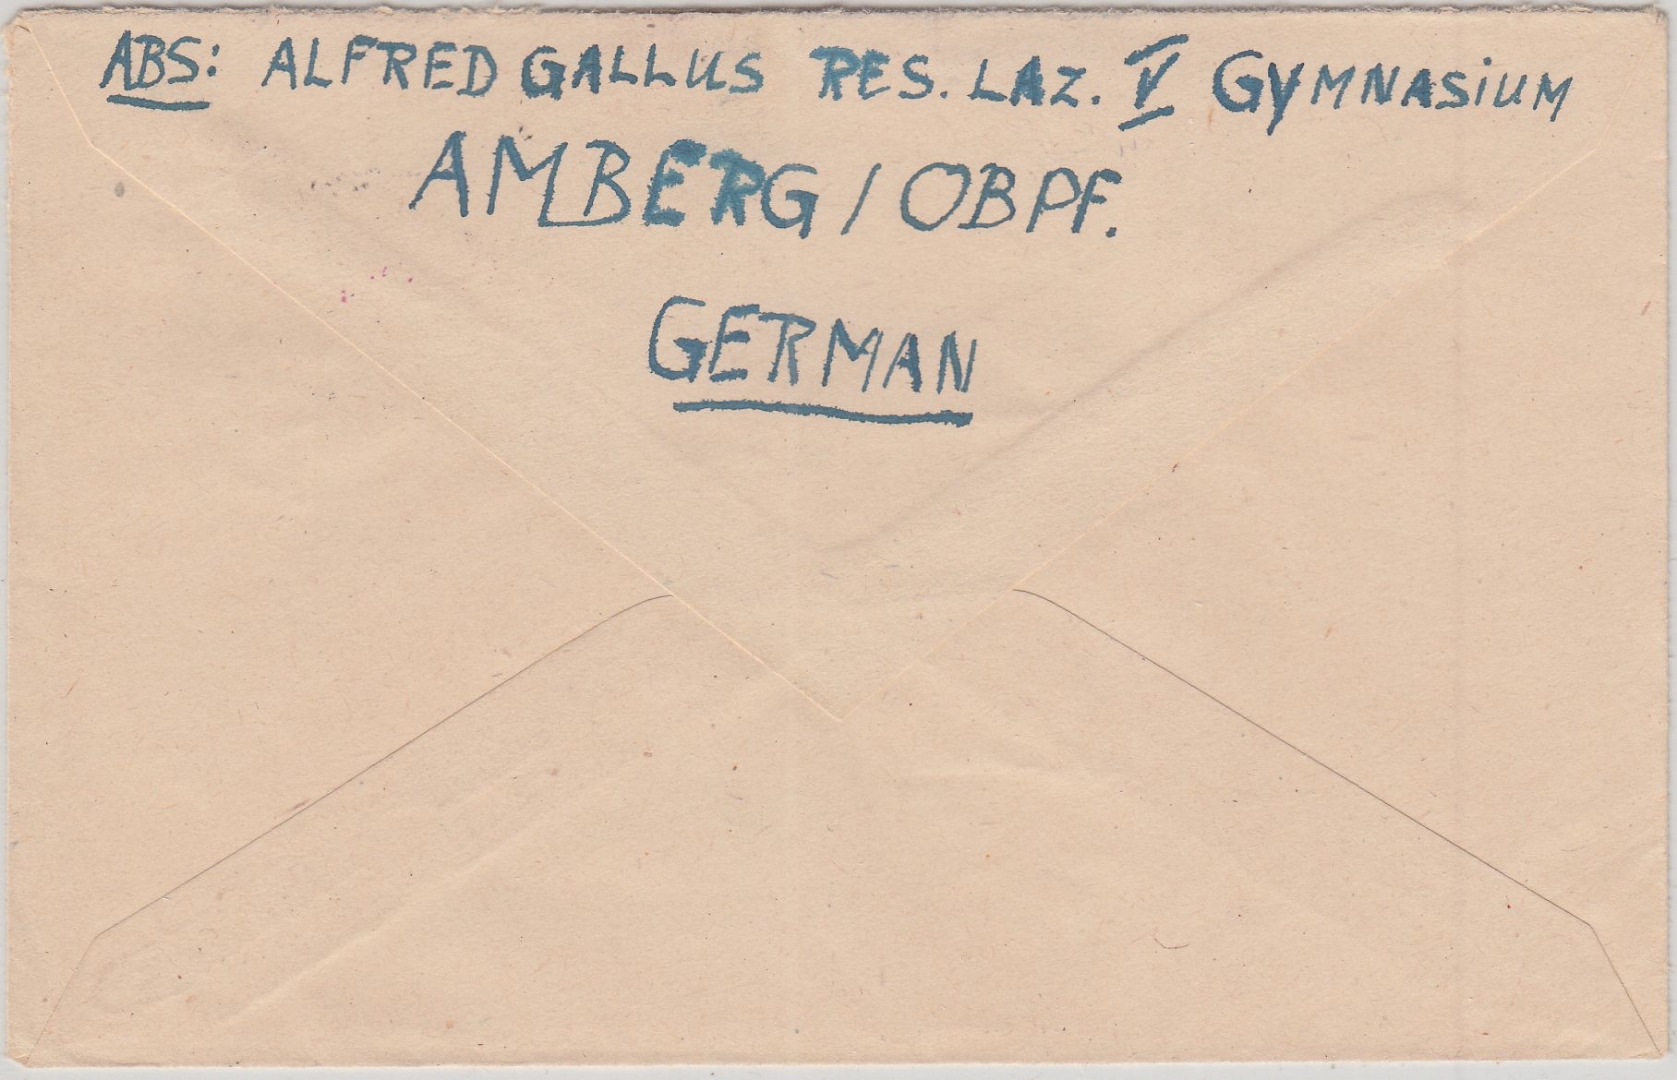 ABS: ALFRED GALLUS RES. LAZ. V GYMNASiUM
AMBERG / OBPF.
GERMAN